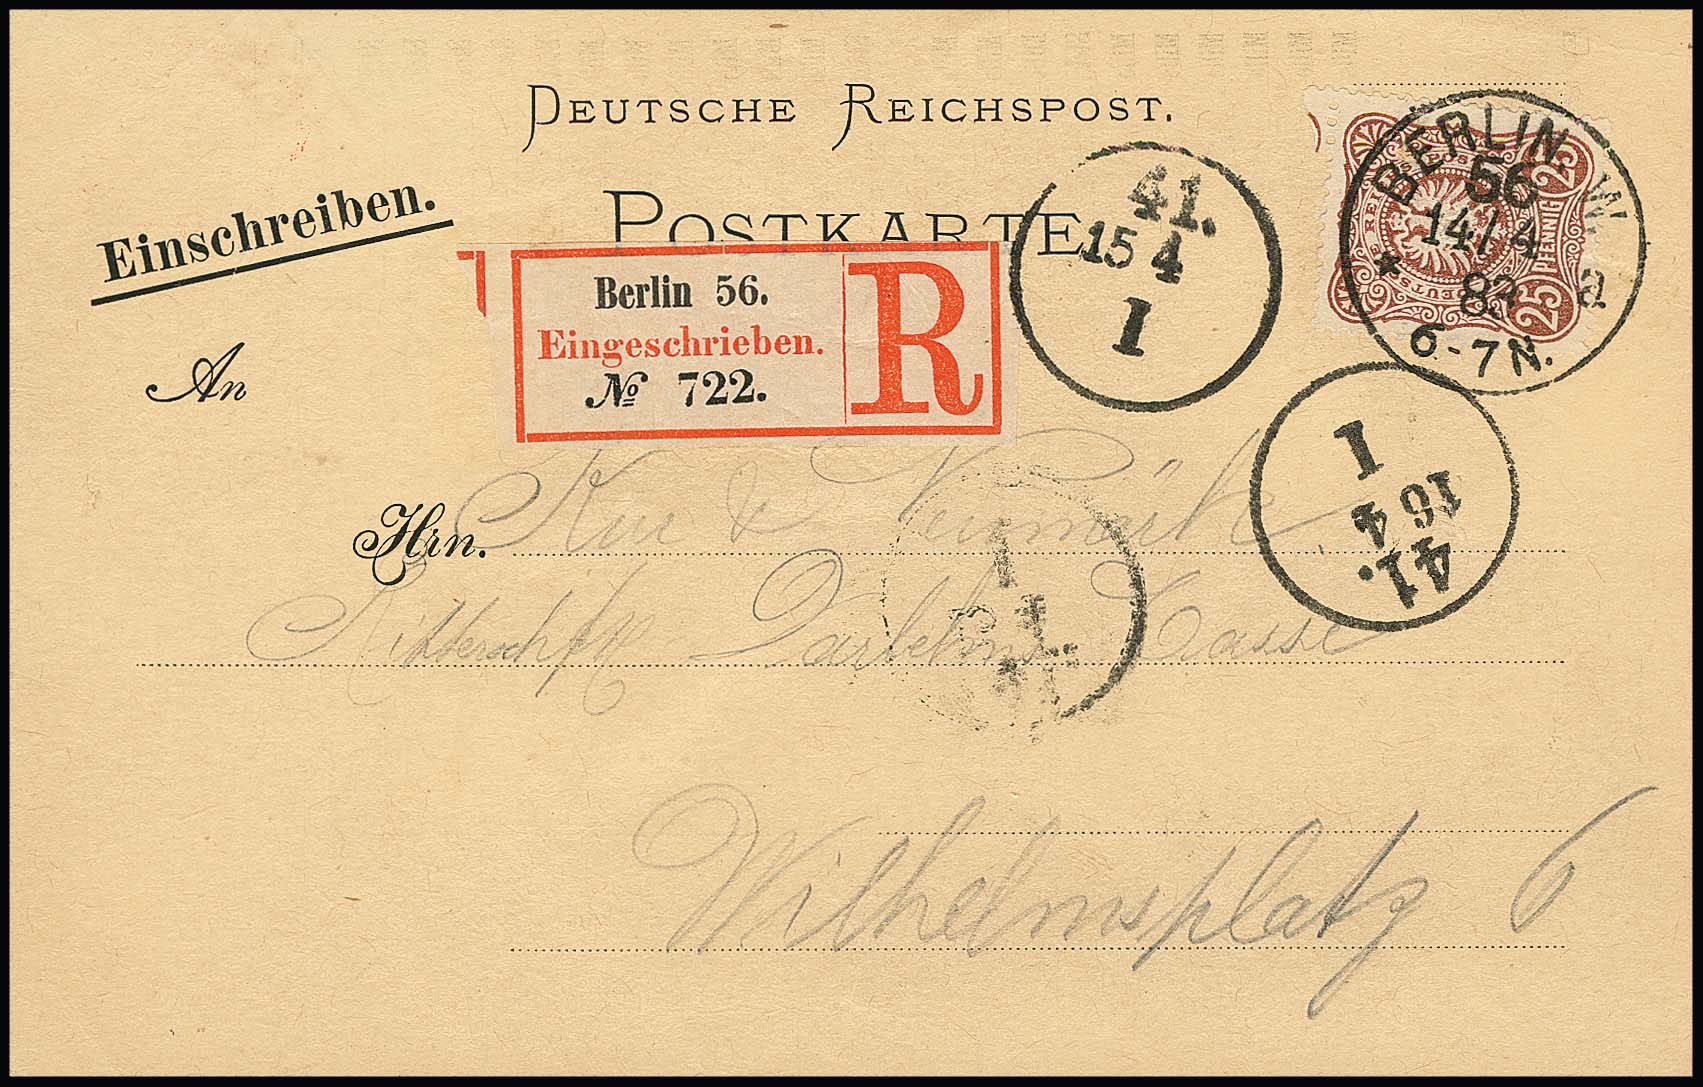 DEUTSCHE REICHSPOST.
POSTKARTE
Einschreiben.
Berlin 56.
Eingeschrieben.
№ 722.
R
41.
15 4
1
BERLIN W.
56
14/4
* a
6-7N.
25 PFENNIG 25
An
1
16 4
41.
Hrn.
&
Casse
Wilhelmsplatz 6